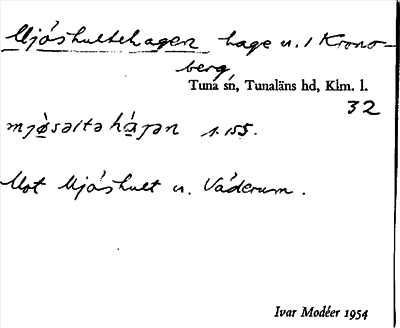 Mjöshultehagen hage u. 1 Krono-
berg
Tuna sn, Tunaläns hd, Klm. l.
32
s. 155.
Mot Mjöshult u. Väderum.
Ivar Modéer 1954